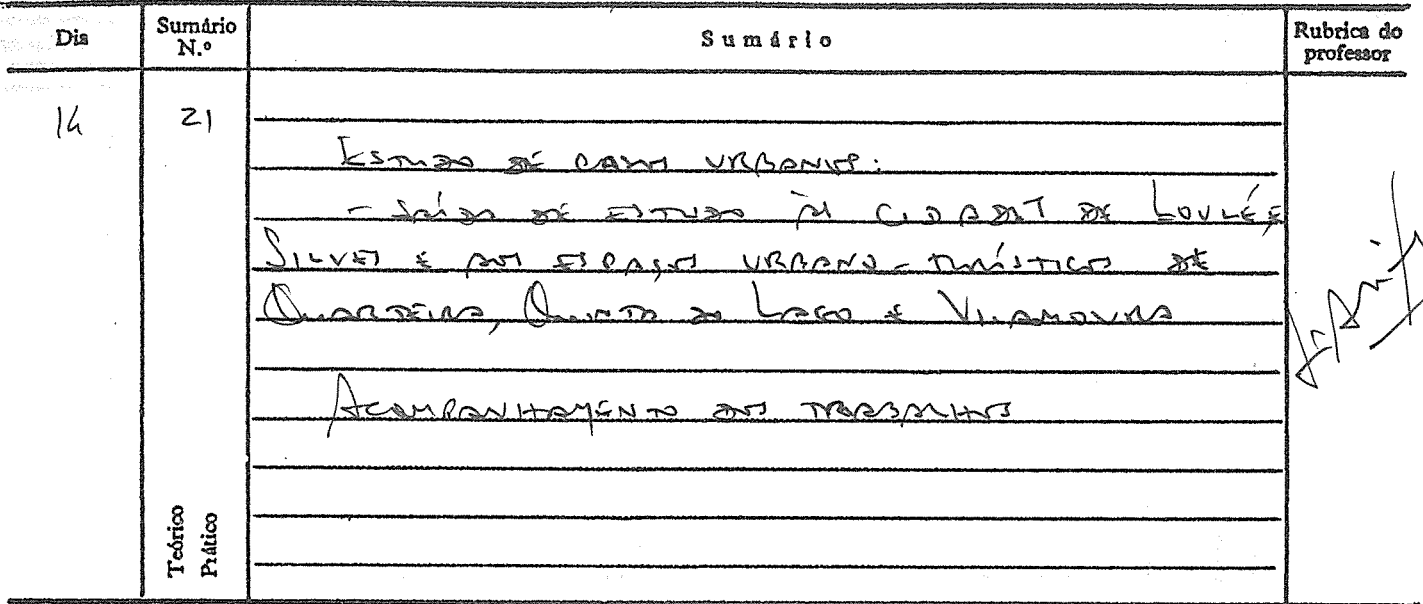 Dia
Sumário N.º
Sumário
Rubrica do professor
14
21
ESTUDO DE CASOS URBANOS:
- SAÍDA DE ESTUDO ÀS CIDADES DE LOULÉ E
SILVES E AOS ESPAÇOS URBANO-TURÍSTICOS DE
QUARTEIRA, QUINTA DO LAGO E VILAMOURA
ACOMPANHAMENTO DOS TRABALHOS
Teórico
Prático